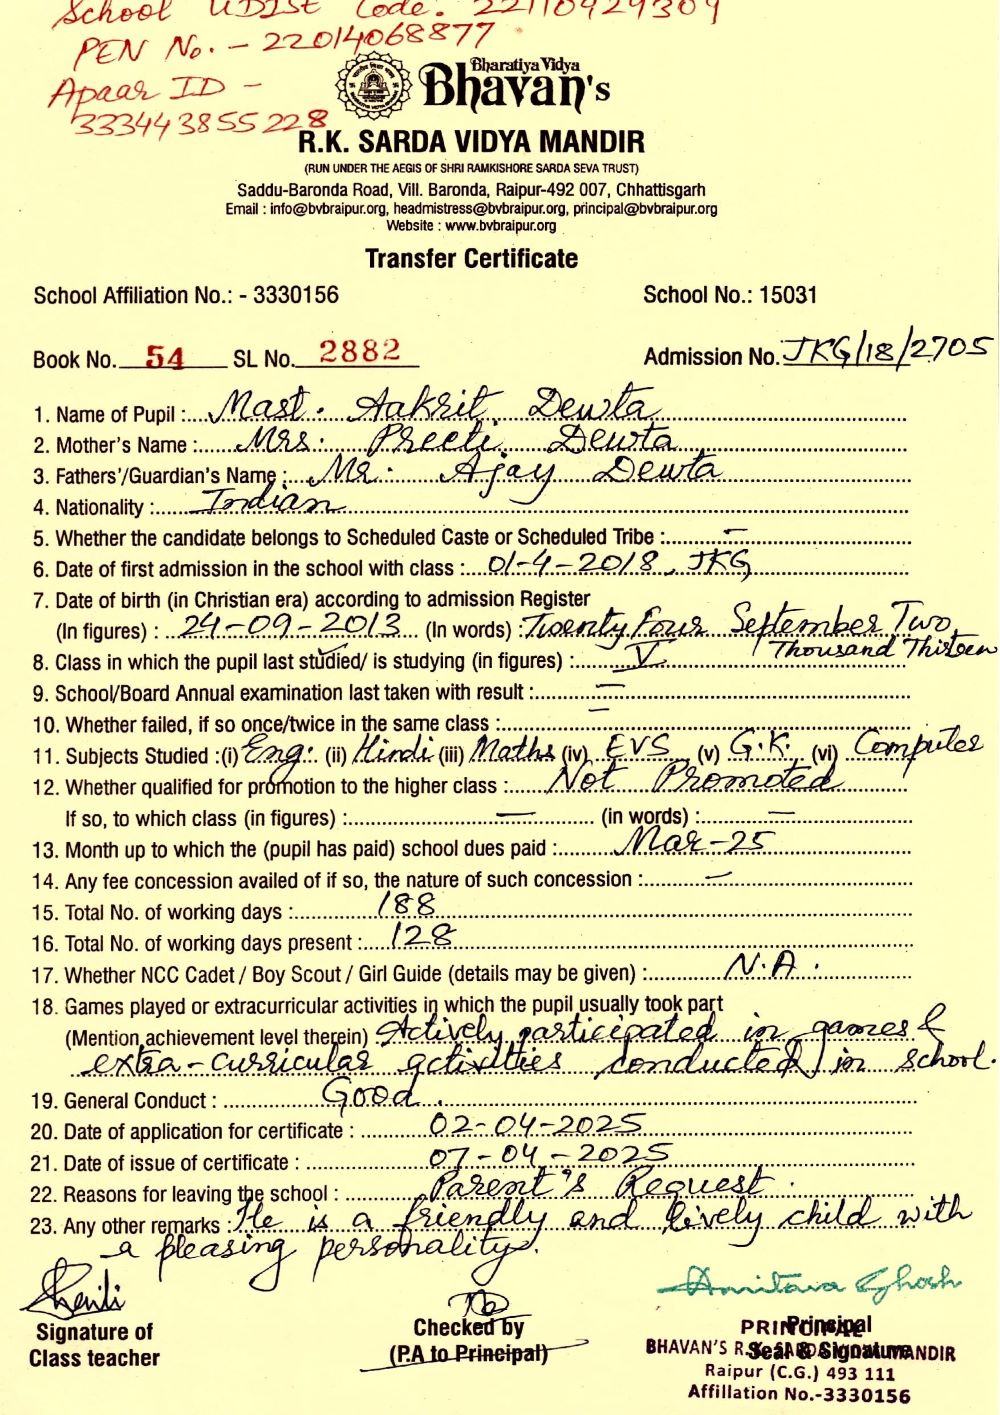 School UDISE Code: 22110929309
PEN No. - 22014068877
Apaar ID -
333443855228
Bharatiya Vidya
Bhavan's
R.K. SARDA VIDYA MANDIR
(RUN UNDER THE AEGIS OF SHRI RAMKISHORE SARDA SEVA TRUST)
Saddu-Baronda Road, Vill. Baronda, Raipur-492 007, Chhattisgarh
Email : info@bvbraipur.org, headmistress@bvbraipur.org, principal@bvbraipur.org
Website : www.bvbraipur.org
Transfer Certificate
School Affiliation No.: - 3330156 School No.: 15031
Book No. 54 SL No. 2882 Admission No. JKG/18/2705
1. Name of Pupil : Mast. Aakrit Dewta
2. Mother's Name : Mrs. Preeti Dewta
3. Fathers'/Guardian's Name : Mr. Ajay Dewta
4. Nationality : Indian
5. Whether the candidate belongs to Scheduled Caste or Scheduled Tribe : -
6. Date of first admission in the school with class : 01-4-2018, JKG
7. Date of birth (in Christian era) according to admission Register
(In figures) : 24-09-2013 (In words) : Twenty Four September Two
Thousand Thirteen
8. Class in which the pupil last studied/ is studying (in figures) : V
9. School/Board Annual examination last taken with result : -
10. Whether failed, if so once/twice in the same class : -
11. Subjects Studied :(i) Eng. (ii) Hindi (iii) Maths (iv) EVS (v) G.K. (vi) Computer
12. Whether qualified for promotion to the higher class : Not Promoted
If so, to which class (in figures) : - (in words) : -
13. Month up to which the (pupil has paid) school dues paid : Mar-25
14. Any fee concession availed of if so, the nature of such concession : -
15. Total No. of working days : 188
16. Total No. of working days present : 128
17. Whether NCC Cadet / Boy Scout / Girl Guide (details may be given) : N.A.
18. Games played or extracurricular activities in which the pupil usually took part
(Mention achievement level therein) Actively participated in games &
extra-curricular activities conducted in school.
19. General Conduct : Good.
20. Date of application for certificate : 02-04-2025
21. Date of issue of certificate : 07-04-2025
22. Reasons for leaving the school : Parent's Request.
23. Any other remarks : He is a friendly and lively child with
a pleasing personality.
Amitava Ghosh
Signature of
Class teacher
Checked by
(P.A to Principal)
Principal
Seal & Signature
PRINCIPAL
BHAVAN'S R.K. SARDA VIDYA MANDIR
Raipur (C.G.) 493 111
Affillation No.-3330156